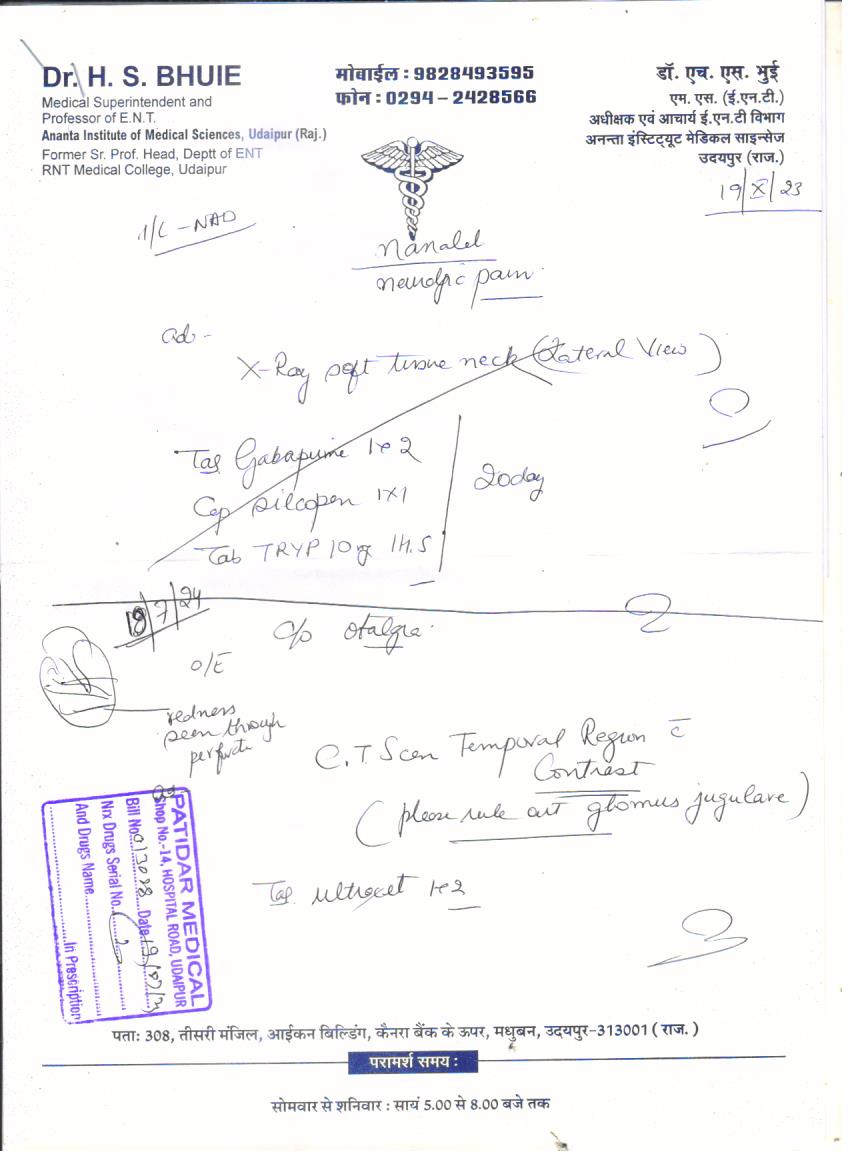 Dr. H. S. BHUIE
Medical Superintendent and
Professor of E.N.T.
Ananta Institute of Medical Sciences, Udaipur (Raj.)
Former Sr. Prof. Head, Deptt of ENT
RNT Medical College, Udaipur
मोबाईल : 9828493595
फोन : 0294 – 2428566
डॉ. एच. एस. भुई
एम. एस. (ई.एन.टी.)
अधीक्षक एवं आचार्य ई.एन.टी विभाग
अनन्ता इंस्टिट्यूट मेडिकल साइन्सेज
उदयपुर (राज.)
19/X/23
I/L - NAD
pain
ad -
X-Ray soft tissue neck (Lateral View)
Tab 1x2
Cap 1x1
Tab TRYP 10mg 1H.S
20day
18/7/24
C/o otalgia
O/E
redness
seen through
C.T. Scan Temporal Region c̄
Contrast
(please rule out glomus jugulare)
Tab ultracet 1x2
PATIDAR MEDICAL
Shop No.-14, HOSPITAL ROAD, UDAIPUR
Bill No. 013028 Date
Nrx Drugs Serial No.
And Drugs Name
In Prescription
पता: 308, तीसरी मंजिल, आईकन बिल्डिंग, कैनरा बैंक के ऊपर, मधुबन, उदयपुर-313001 ( राज. )
परामर्श समय :
सोमवार से शनिवार : सायं 5.00 से 8.00 बजे तक